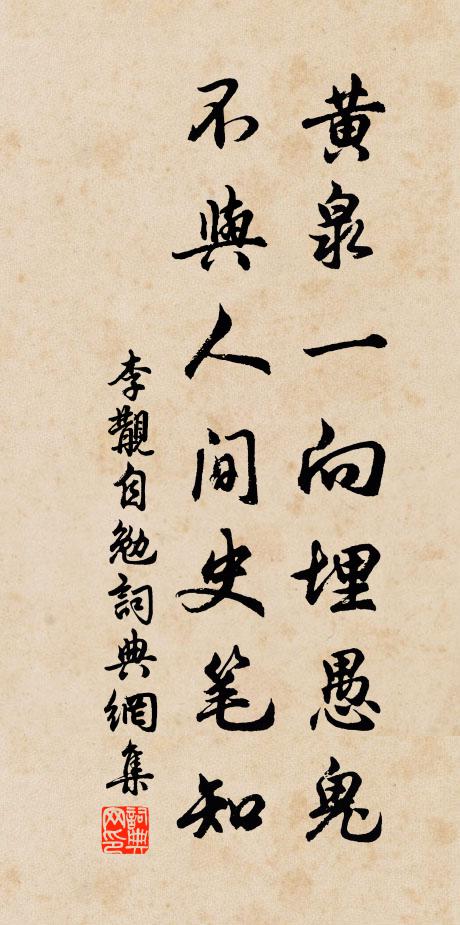 黄泉一向埋愚鬼
不與人間史笔知
李觀自勉詞典網集
詞典網印